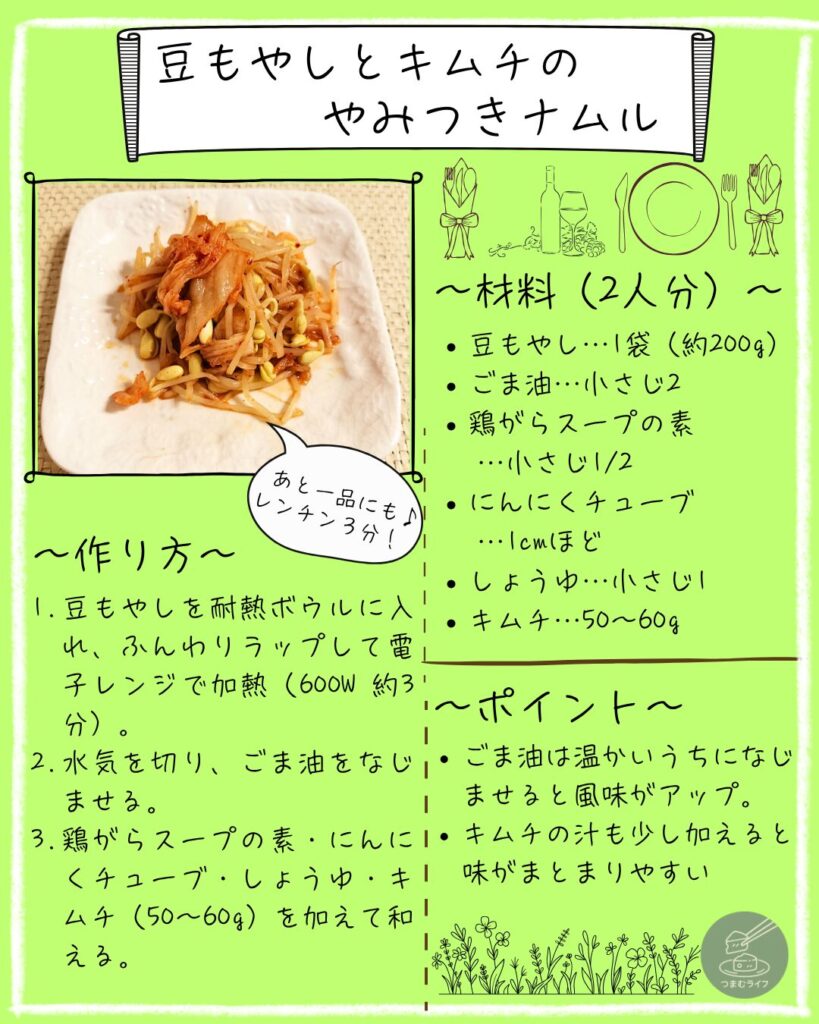 豆もやしとキムチの
やみつきナムル
あと一品にも♪
レンチン3分！
～材料（2人分）～
• 豆もやし…1袋（約200g）
• ごま油…小さじ2
• 鶏がらスープの素
…小さじ1/2
• にんにくチューブ
…1cmほど
• しょうゆ…小さじ1
• キムチ…50～60g
～作り方～
1. 豆もやしを耐熱ボウルに入
れ、ふんわりラップして電
子レンジで加熱（600W 約3
分）。
2. 水気を切り、ごま油をなじ
ませる。
3. 鶏がらスープの素・にんに
くチューブ・しょうゆ・キ
ムチ（50～60g）を加えて和
える。
～ポイント～
• ごま油は温かいうちになじ
ませると風味がアップ。
• キムチの汁も少し加えると
味がまとまりやすい
つまむライフ